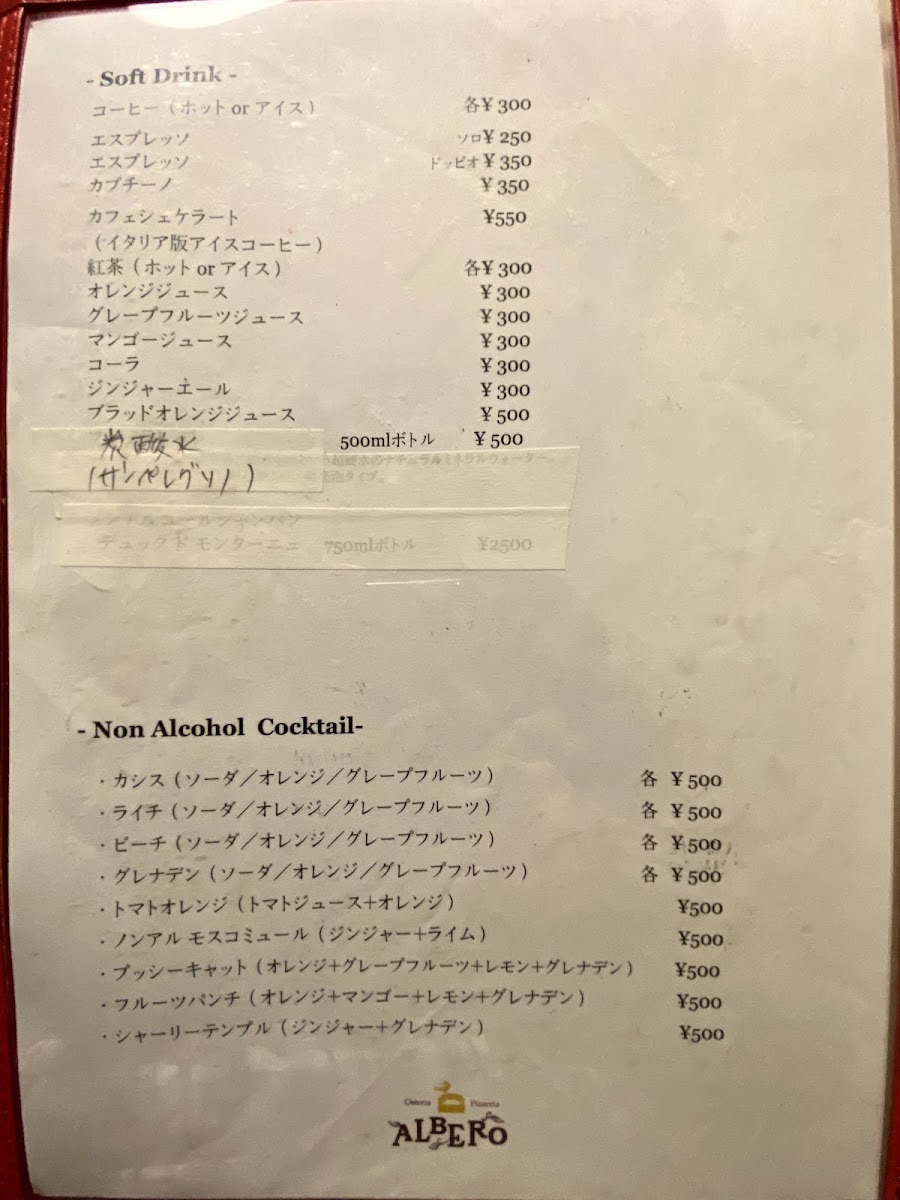 - Soft Drink -
コーヒー（ホット or アイス） 各¥ 300
エスプレッソ ソロ¥ 250
エスプレッソ ドッピオ ¥ 350
カプチーノ ¥ 350
カフェシェケラート ¥550
（イタリア版アイスコーヒー）
紅茶（ホット or アイス） 各¥ 300
オレンジジュース ¥ 300
グレープフルーツジュース ¥ 300
マンゴージュース ¥ 300
コーラ ¥ 300
ジンジャーエール ¥ 300
ブラッドオレンジジュース ¥ 500
炭酸水 500mlボトル ¥ 500
のナチュラルミネラルウォーター。
(サンペレグリノ) タイプ。
デュック ド モンターニュ 750mlボトル ¥2500
- Non Alcohol Cocktail-
・カシス（ソーダ／オレンジ／グレープフルーツ） 各 ¥ 500
・ライチ（ソーダ／オレンジ／グレープフルーツ） 各 ¥ 500
・ピーチ（ソーダ／オレンジ／グレープフルーツ） 各 ¥ 500
・グレナデン（ソーダ／オレンジ／グレープフルーツ） 各 ¥ 500
・トマトオレンジ（トマトジュース+オレンジ） ¥500
・ノンアル モスコミュール（ジンジャー+ライム） ¥500
・プッシーキャット（オレンジ+グレープフルーツ+レモン+グレナデン） ¥500
・フルーツパンチ（オレンジ+マンゴー+レモン+グレナデン） ¥500
・シャーリーテンプル（ジンジャー+グレナデン） ¥500
Osteria Pizzeria
ALBERO